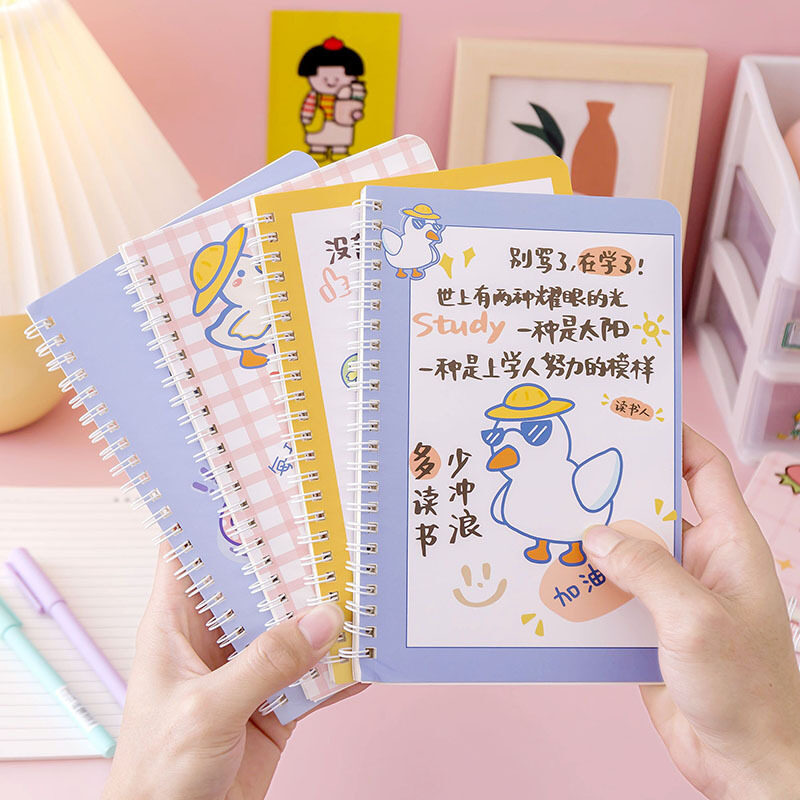 别骂了,在学了!
世上有两种耀眼的光
Study 一种是太阳
一种是上学人努力的模样
读书人
多读书
少冲浪
加油
没